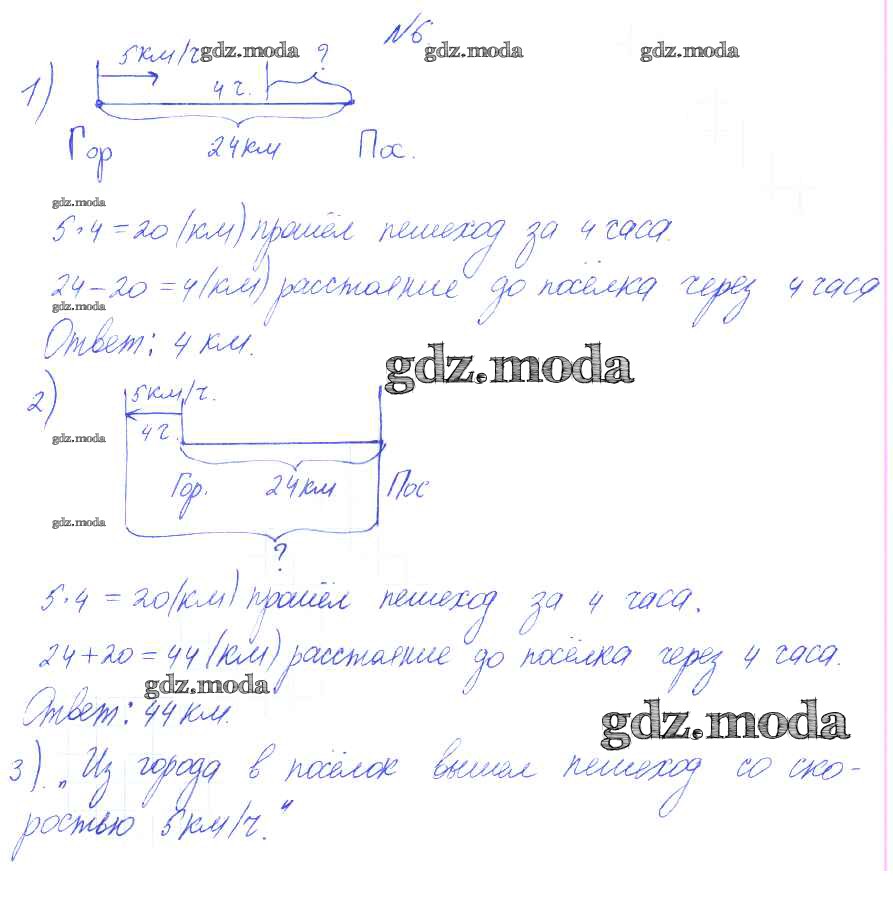 №6
gdz.moda gdz.moda gdz.moda
1) 5 км/ч ?
4 ч.
Гор 24 км Пос.
gdz.moda
5·4=20 (км) прошёл пешеход за 4 часа.
24-20=4 (км) расстояние до посёлка через 4 часа
gdz.moda
Ответ: 4 км.
gdz.moda
2) 5 км/ч.
4 ч.
gdz.moda
Гор. 24 км Пос
gdz.moda
?
5·4=20 (км) прошёл пешеход за 4 часа.
24+20=44 (км) расстояние до посёлка через 4 часа.
gdz.moda
Ответ: 44 км.
gdz.moda
3). „Из города в посёлок вышел пешеход со ско-
ростью 5 км/ч."